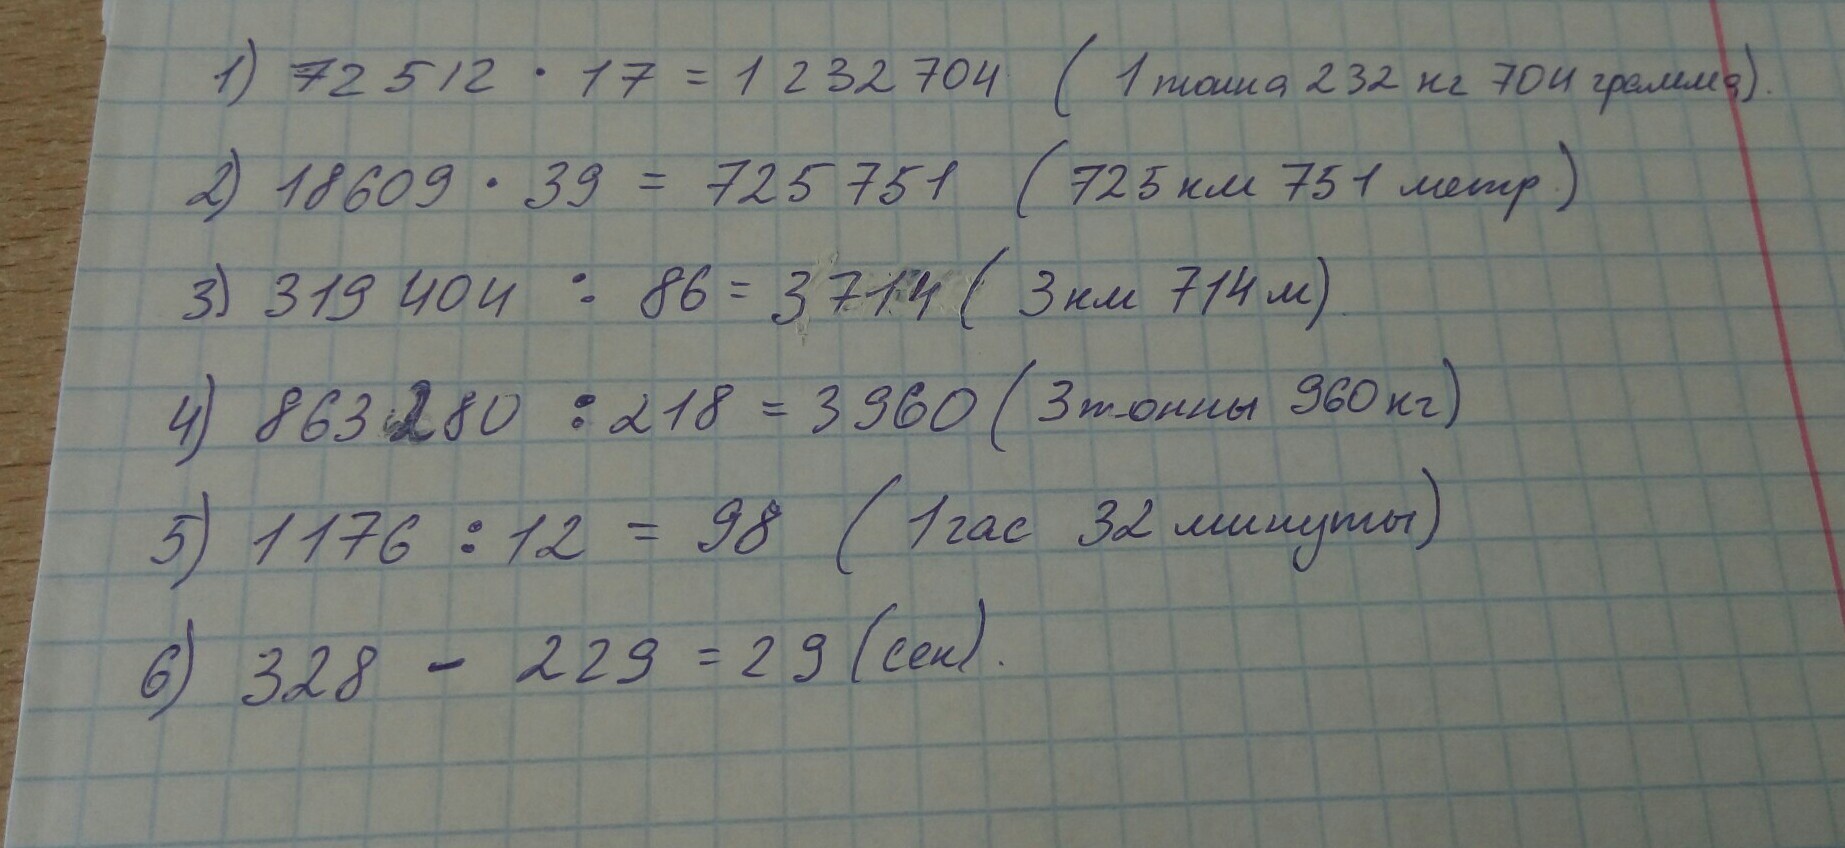 1) 72512 · 17 = 1 232 704 ( 1 тонна 232 кг 704 грамма).
2) 18609 · 39 = 725 751 ( 725 км 751 метр )
3) 319 404 : 86 = 3714 ( 3 км 714 м)
4) 863 280 : 218 = 3960 ( 3 тонны 960 кг)
5) 1176 : 12 = 98 ( 1 час 32 минуты)
6) 328 - 229 = 29 (сек).